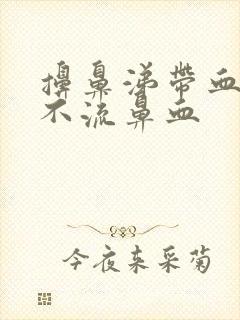 擤鼻涕帶血
不流鼻血
今夜来采菊